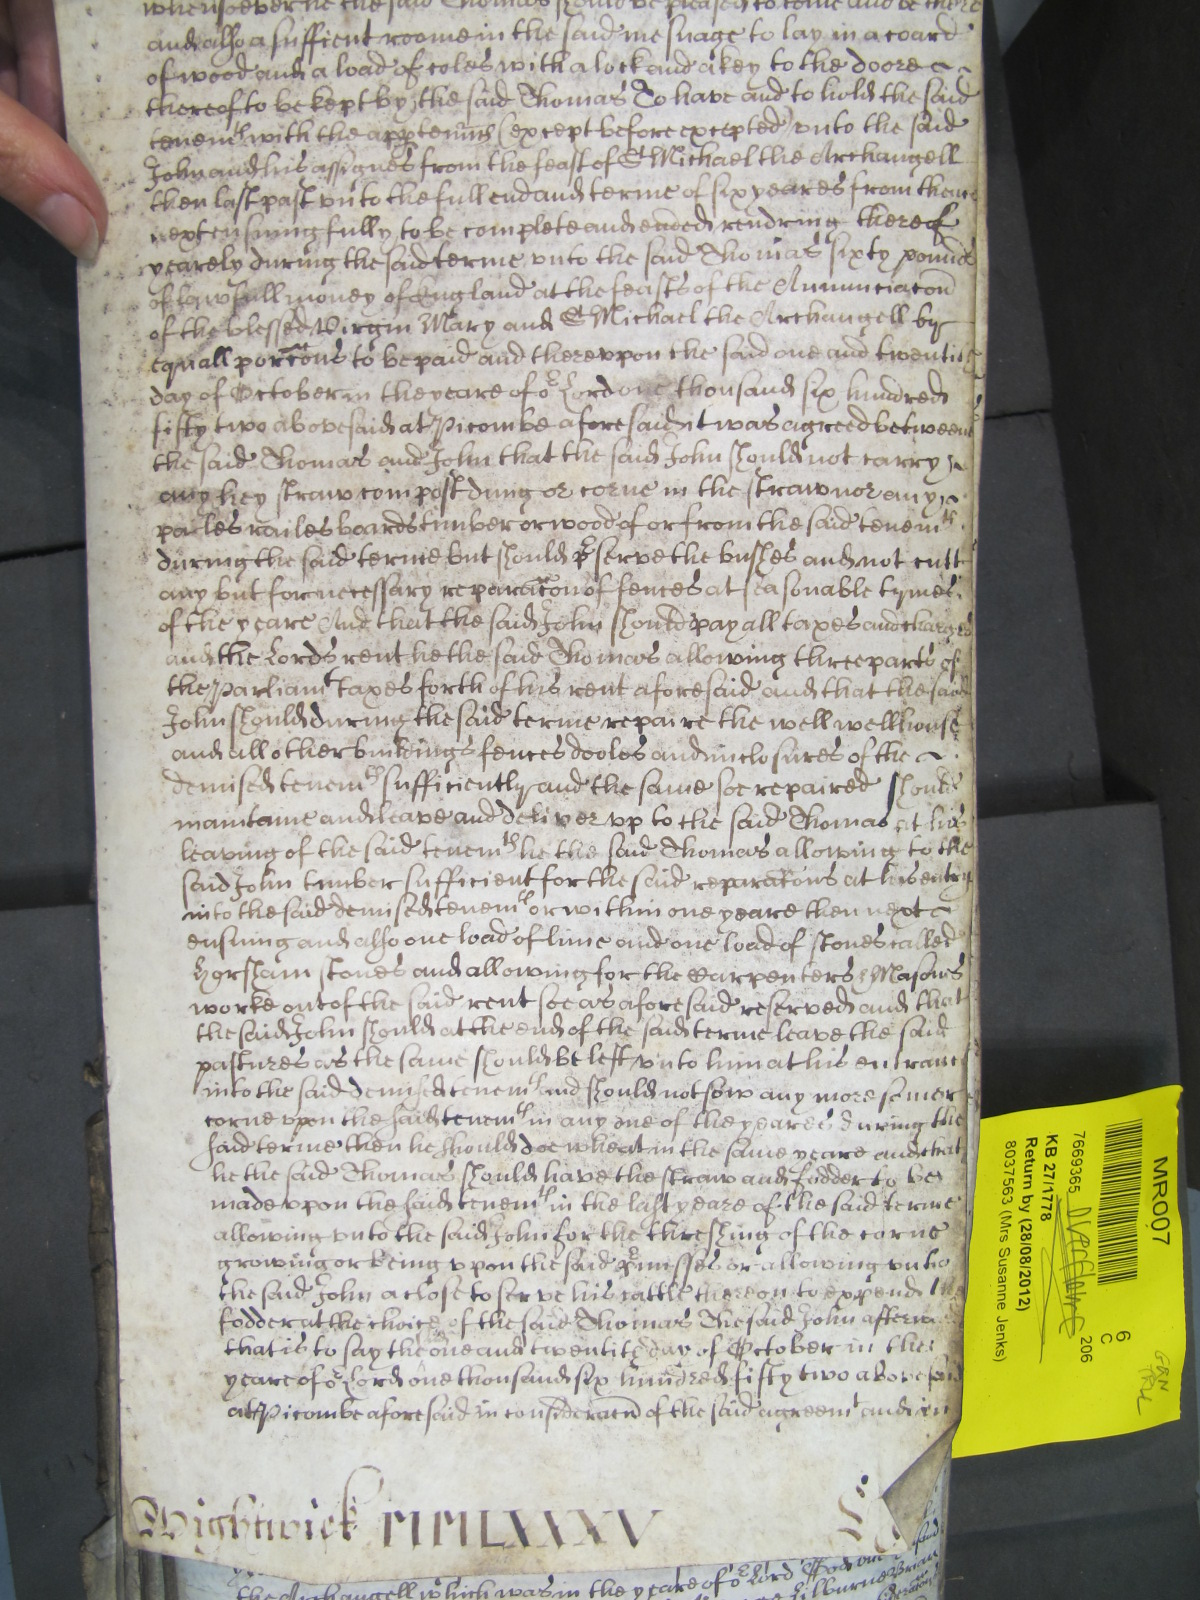 whensoever he the said Thomas should be pleased to come and be there
and also a sufficient roome in the said messuage to lay in a coard
of wood and a load of coles with a lock and a key to the doore
thereof to be kept by the said Thomas To have and to hold the said
tenemts with the apptennces (except before excepted) vnto the said
John and his assignes from the feast of St Michael the Archangell
then last past vnto the full end and terme of six yeares from thence
next ensuing fully to be complete and ended rendring thereof
yearely during the said terme vnto the said Thomas sixty pounds
of lawfull money of England at the feasts of the Annunciacon
of the blessed Virgin Mary and St Michael the Archangell by
equall portcons to be paid and therevpon the said one and twentith
day of October in the yeare of or Lord one thousand six hundred
fifty two abovesaid at Picombe aforesaid it was agreed betweene
the said Thomas and John that the said John should not carry
any hey straw compost dung or corne in the straw nor any
pales railes boards timber or wood of or from the said tenemts
during the said terme but should pserve the bushes and not cutt
any but for necessary reparacon of fences at seasonable tymes
of the yeare And that the said John should pay all taxes and charges
and the Lords rent he the said Thomas allowing three parts of
the Parliamt taxes forth of his rent aforesaid and that the said
John should during the said terme repaire the well wellhouse
and all other buildings fences dooles and inclosures of the
demised tenemts sufficiently and the same soe repaired should
maintaine and leave and deliver vp to the said Thomas at his
leaving of the said tenemts he the said Thomas allowing to the
said John timber sufficient for the said reparacons at his entry
into the said demised tenemts or within one yeare then next
ensuing and also one load of lime and one load of stones called
Horsham stones and allowing for the Carpenters & Masons
worke out of the said rent soe as aforesaid reserved and that
the said John should at the end of the said terme leave the said
pastures as the same should be left vnto him at his entrance
into the said demised tenemts and should not sow any more somer
corne vpon the said tenemts in any one of the yeares during the
said terme then he should doe wheat in the same yeare and that
he the said Thomas should have the straw and fodder to be
made vpon the said tenemts in the last yeare of the said terme
allowing vnto the said John for the threshing of the corne
growing or being vpon the said pmisses or allowing vnto
the said John a close to serve his cattle thereon to expend the
fodder at the choice of the said Thomas the said John afterw
that is to say the one and twentith day of October in the
yeare of or Lord one thousand six hundred fifty two abovesaid
at Picombe aforesaid in consideracon of the said agreemt and in
Wightwick MMLXXXV
the Archangell which was in the yeare of or Lord God
MRO07
6
C
206
7669365
KB 27/1178
Return by (28/08/2012)
8037563 (Mrs Susanne Jenks)